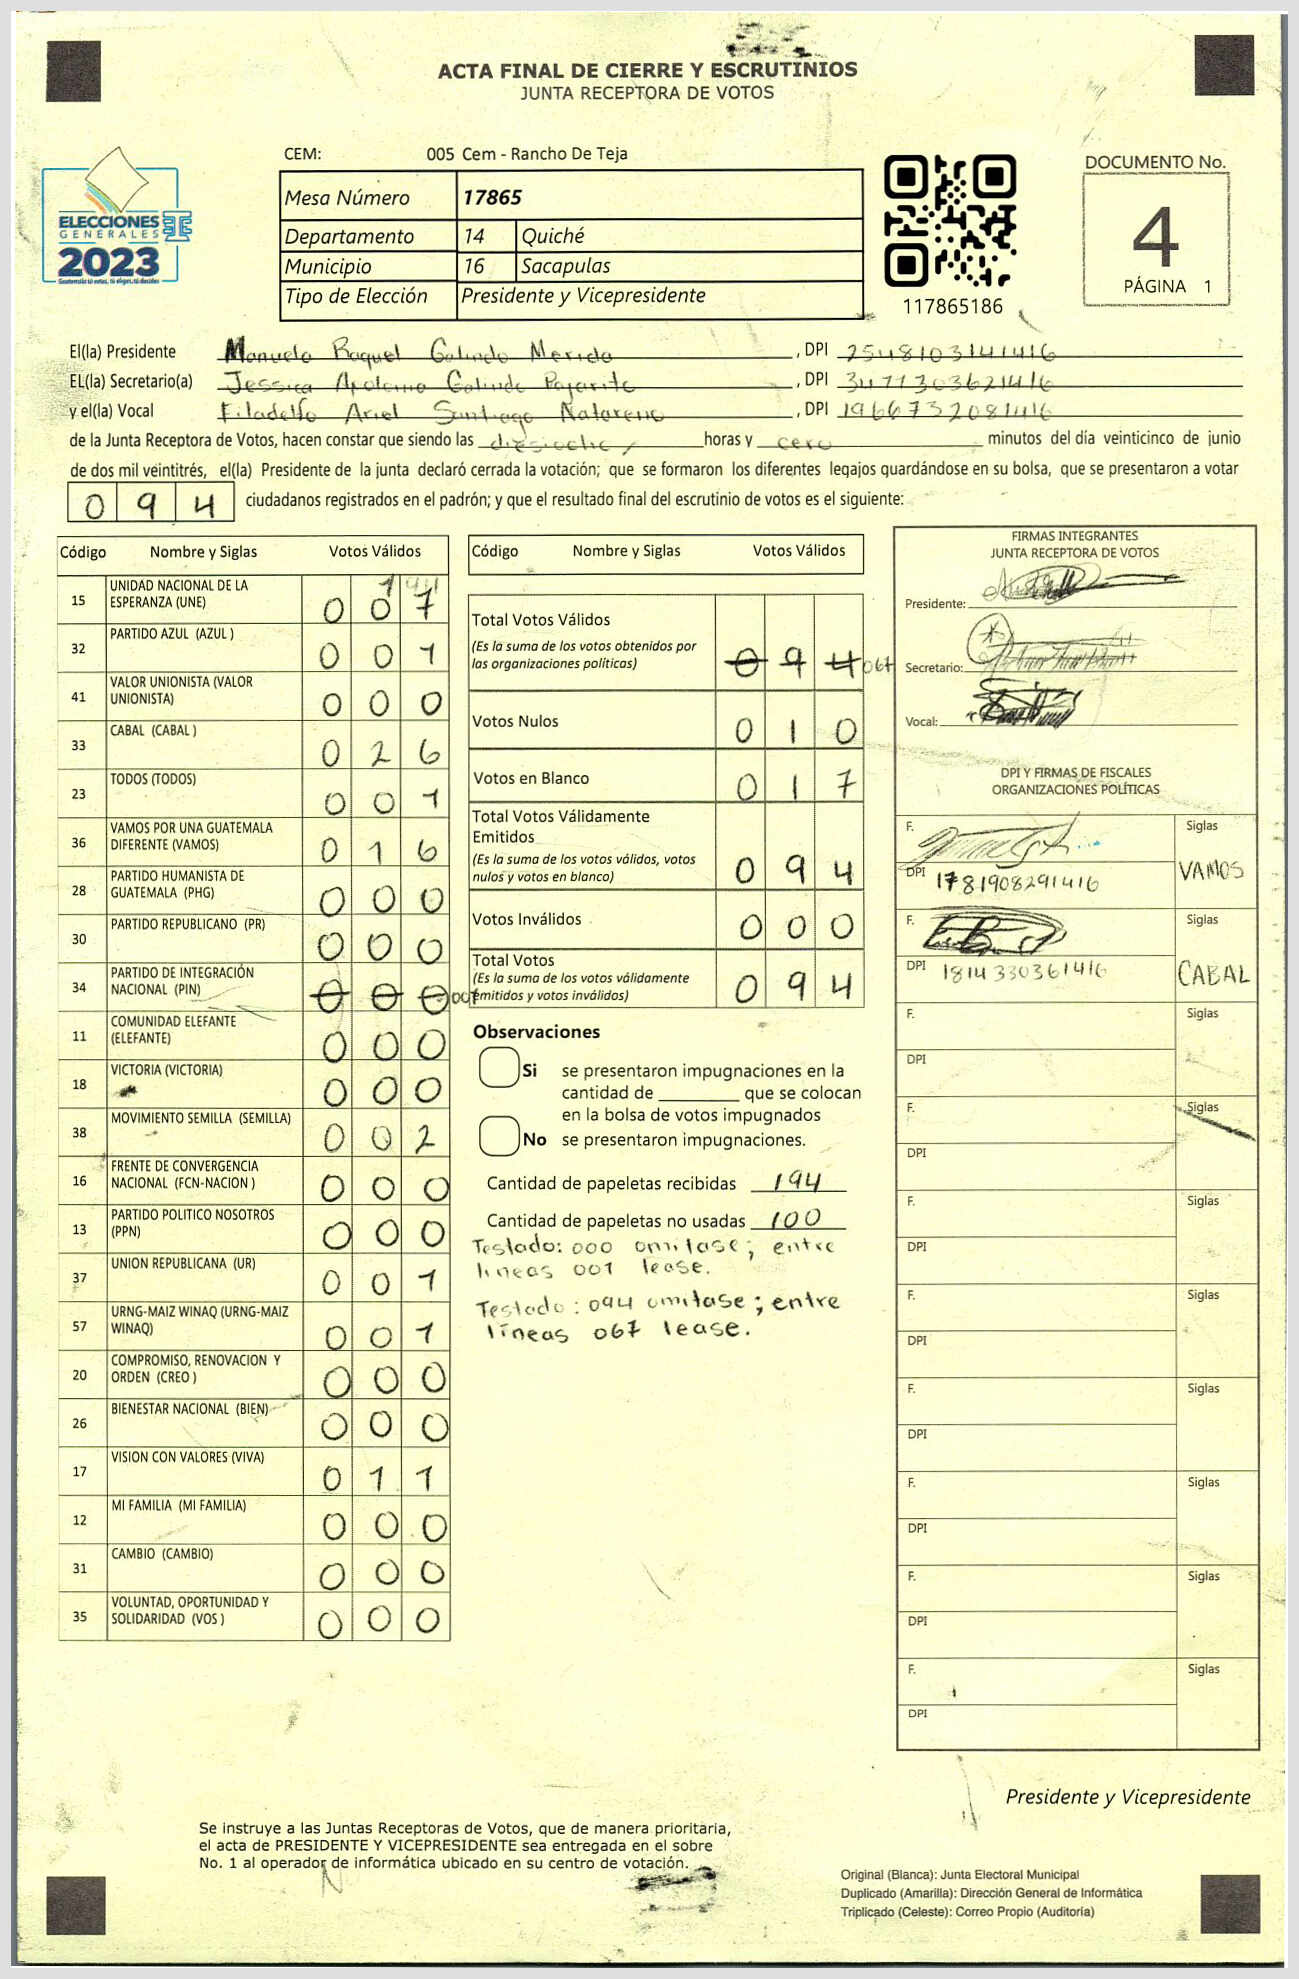 ACTA FINAL DE CIERRE Y ESCRUTINIOS
JUNTA RECEPTORA DE VOTOS
ELECCIONES
GENERALES
2023
CEM: 005 Cem - Rancho De Teja
Mesa Número 17865
Departamento 14 Quiché
Municipio 16 Sacapulas
Tipo de Elección Presidente y Vicepresidente
117865186
DOCUMENTO No.
4
PÁGINA 1
El(la) Presidente Manuela Raquel Galindo Merida, DPI 2548103141416
EL(la) Secretario(a) Jessica Galindo, DPI 3477303621416
y el(la) Vocal Filadelfo Ariel Santiago Natareno, DPI 1966732081416
de la Junta Receptora de Votos, hacen constar que siendo las diesiocho horas y cero minutos del día veinticinco de junio
de dos mil veintitrés, el(la) Presidente de la junta declaró cerrada la votación; que se formaron los diferentes legajos guardándose en su bolsa, que se presentaron a votar
094 ciudadanos registrados en el padrón; y que el resultado final del escrutinio de votos es el siguiente:
Código Nombre y Siglas Votos Válidos
15 UNIDAD NACIONAL DE LA ESPERANZA (UNE) 0 0 7
32 PARTIDO AZUL (AZUL ) 0 0 1
41 VALOR UNIONISTA (VALOR UNIONISTA) 0 0 0
33 CABAL (CABAL ) 0 2 6
23 TODOS (TODOS) 0 0 1
36 VAMOS POR UNA GUATEMALA DIFERENTE (VAMOS) 0 1 6
28 PARTIDO HUMANISTA DE GUATEMALA (PHG) 0 0 0
30 PARTIDO REPUBLICANO (PR) 0 0 0
34 PARTIDO DE INTEGRACIÓN NACIONAL (PIN) 0 0 0 001
11 COMUNIDAD ELEFANTE (ELEFANTE) 0 0 0
18 VICTORIA (VICTORIA) 0 0 0
38 MOVIMIENTO SEMILLA (SEMILLA) 0 0 2
16 FRENTE DE CONVERGENCIA NACIONAL (FCN-NACION ) 0 0 0
13 PARTIDO POLITICO NOSOTROS (PPN) 0 0 0
37 UNION REPUBLICANA (UR) 0 0 1
57 URNG-MAIZ WINAQ (URNG-MAIZ WINAQ) 0 0 1
20 COMPROMISO, RENOVACION Y ORDEN (CREO ) 0 0 0
26 BIENESTAR NACIONAL (BIEN) 0 0 0
17 VISION CON VALORES (VIVA) 0 1 1
12 MI FAMILIA (MI FAMILIA) 0 0 0
31 CAMBIO (CAMBIO) 0 0 0
35 VOLUNTAD, OPORTUNIDAD Y SOLIDARIDAD (VOS ) 0 0 0
Código Nombre y Siglas Votos Válidos
Total Votos Válidos
(Es la suma de los votos obtenidos por
las organizaciones políticas) 0 9 4 067
Votos Nulos 0 1 0
Votos en Blanco 0 1 7
Total Votos Válidamente
Emitidos
(Es la suma de los votos válidos, votos
nulos y votos en blanco) 0 9 4
Votos Inválidos 0 0 0
Total Votos
(Es la suma de los votos válidamente
emitidos y votos inválidos) 0 9 4
Observaciones
Si se presentaron impugnaciones en la
cantidad de ________ que se colocan
en la bolsa de votos impugnados
No se presentaron impugnaciones.
Cantidad de papeletas recibidas 194
Cantidad de papeletas no usadas 100
Testado: 000 omitase; entre
lineas 001 lease.
Testado: 094 omitase; entre
líneas 067 lease.
FIRMAS INTEGRANTES
JUNTA RECEPTORA DE VOTOS
Presidente:
Secretario:
Vocal:
DPI Y FIRMAS DE FISCALES
ORGANIZACIONES POLÍTICAS
F. Siglas
DPI 1781908291416 VAMOS
F. Siglas
DPI 1814330361416 CABAL
F. Siglas
DPI
F. Siglas
DPI
F. Siglas
DPI
F. Siglas
DPI
F. Siglas
DPI
F. Siglas
DPI
F. Siglas
DPI
F. Siglas
DPI
Presidente y Vicepresidente
Se instruye a las Juntas Receptoras de Votos, que de manera prioritaria,
el acta de PRESIDENTE Y VICEPRESIDENTE sea entregada en el sobre
No. 1 al operador de informática ubicado en su centro de votación.
Original (Blanca): Junta Electoral Municipal
Duplicado (Amarilla): Dirección General de Informática
Triplicado (Celeste): Correo Propio (Auditoría)